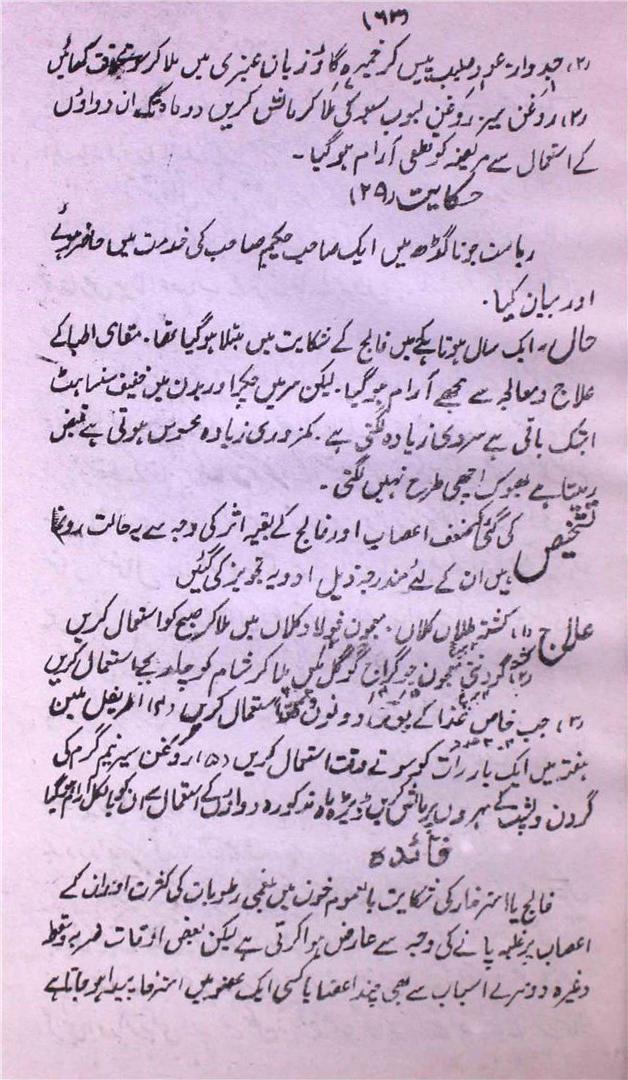 (۶۳)
(۲) جدوار عود صلیب پیس کر خمیرہ گاؤزبان عنبری میں ملا کر کھائیں
(۳) روغن سیر روغن لبوب سبعہ کی ملا کر مالش کریں دو ماہ تک ان دواؤں
کے استعمال سے مریضہ کو قطعی آرام ہو گیا۔
حکایت (۲۹)
ریاست جوناگڑھ میں ایک صاحب حکیم صاحب کی خدمت میں حاضر ہوئے
اور بیان کیا۔
حال۔ ایک سال ہوتا ہے کہ میں فالج کے شکایت میں مبتلا ہو گیا تھا۔ مقامی اطبا کے
علاج و معالجہ سے مجھے آرام ہو گیا۔ لیکن سر میں چکر اور بدن میں خفیف سنسناہٹ
ابتک باقی ہے سردی زیادہ لگتی ہے۔ کمزوری زیادہ محسوس ہوتی ہے قبض
رہتا ہے بھوک اچھی طرح نہیں لگتی۔
تشخیص کی گئی کہ ضعف اعصاب اور فالج کے بقیہ اثر کی وجہ سے یہ حالت رونما
ہیں ان کے لئے مندرجہ ذیل ادویہ تجویز کی گئیں
علاج (۱) کشتہ طلاں کلاں۔ معجون فولاد کلاں میں ملا کر صبح کو استعمال کریں
(۲) معجون جوگراج گوگل میں ملا کر شام کو چار بجے استعمال کریں
(۳) حب خاص غذا کے بعد دونوں وقت استعمال کریں (۴) اطریفل ملین
ہفتہ میں ایک بار رات کو سوتے وقت استعمال کریں (۵) روغن سیر نیم گرم کی
گردن و پشت کے مہروں پر مالش کریں ڈیڑھ ماہ مذکورہ دواؤں کے استعمال سے ان کو بالکل آرام ہو گیا
فائدہ
فالج یا استرخار کی شکایت بالعموم خون میں بلغمی رطوبات کی کثرت اور ان کے
اعصاب پر غلبہ پانے کی وجہ سے عارض ہوا کرتی ہے لیکن بعض اوقات ضربہ و سقطہ
وغیرہ دوسرے اسباب سے بھی چند اعضا یا کسی ایک عضو میں استرخا پیدا ہو جاتا ہے